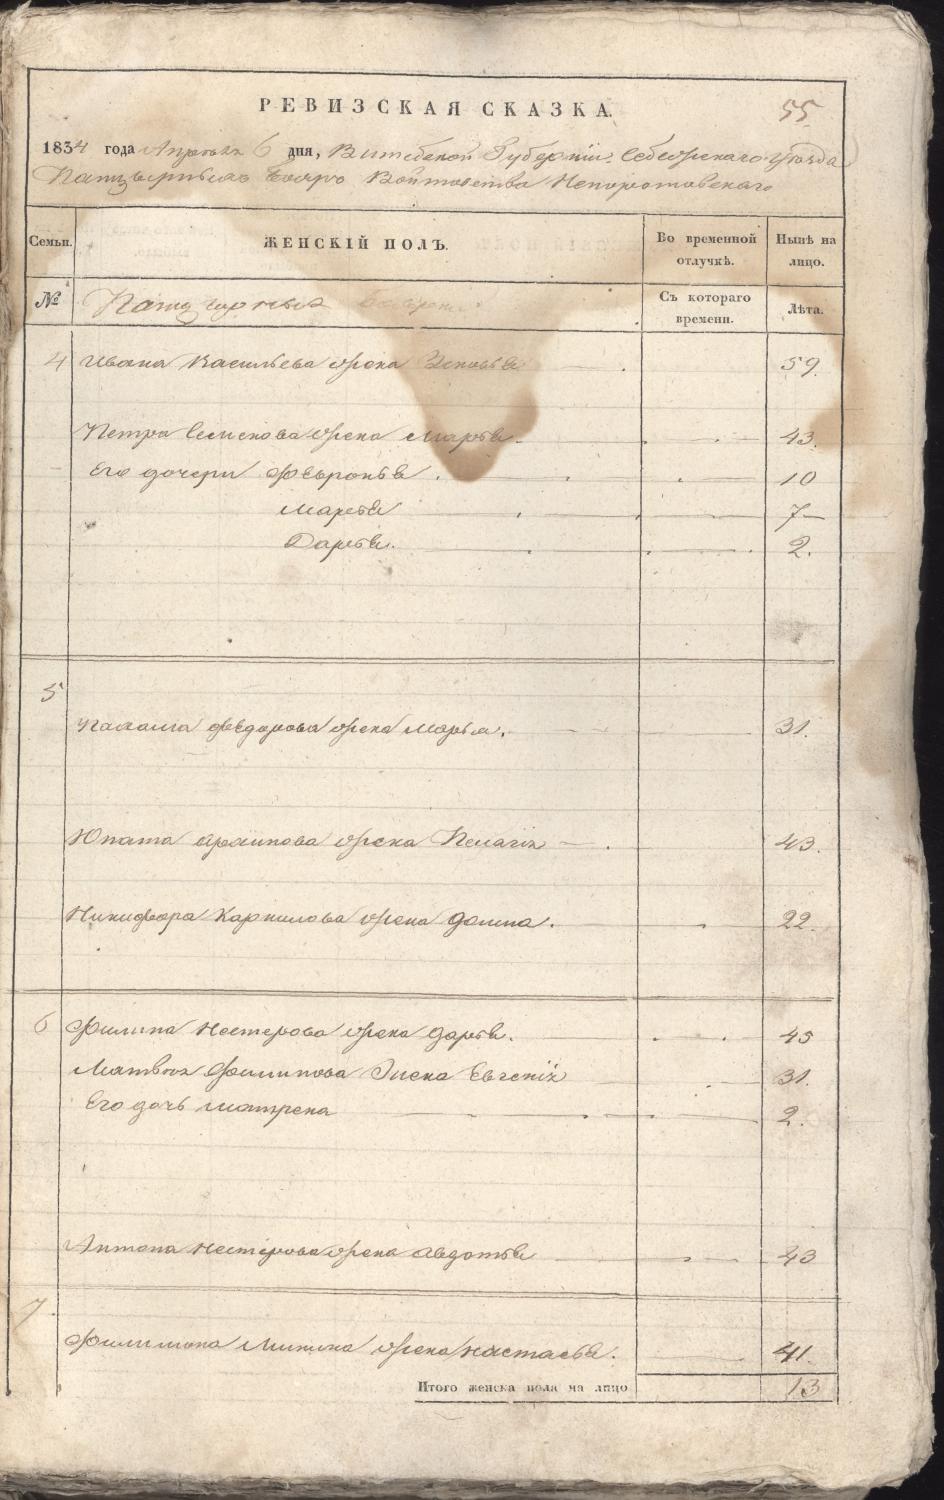 РЕВИЗСКАЯ СКАЗКА.
55
1834 года Апреля 6 дня, Витебской Губерніи Себежскаго уѣзда
Панцырныхъ Бояръ Войтовства Непоротовскаго
Семьи. ЖЕНСКІЙ ПОЛЪ. Во временной отлучкѣ. Нынѣ на лицо.
№ Панцырныхъ Бояръ Съ котораго времени. Лѣта.
4 Ивана Васильева жена Зеновья 59.
Петра Семенова жена Марья 43.
Его дочери Февронья 10
Марья 7
Дарья. 2.
5
федорова жена Марья. 31.
Юпата Архипова жена Пелагія 43.
Никифора Карпилова жена Домна. 22.
6 Филипа Нестерова жена Дарья. 45
Матвѣя Филипова Жена Евгенія 31.
Его дочь Матрена 2.
Антона Нестерова жена Авдотья 43
7
Филимона Минина жена Настасья. 41.
Итого женска пола на лицо 13